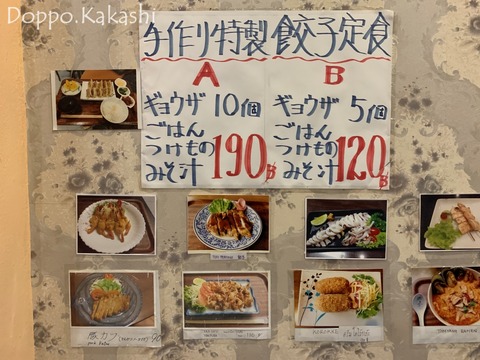 Doppo.Kakashi
手作り特製 餃子定食
A
ギョウザ 10個
ごはん
つけもの
みそ汁
190฿
B
ギョウザ 5個
ごはん
つけもの
みそ汁
120฿
豚カツ